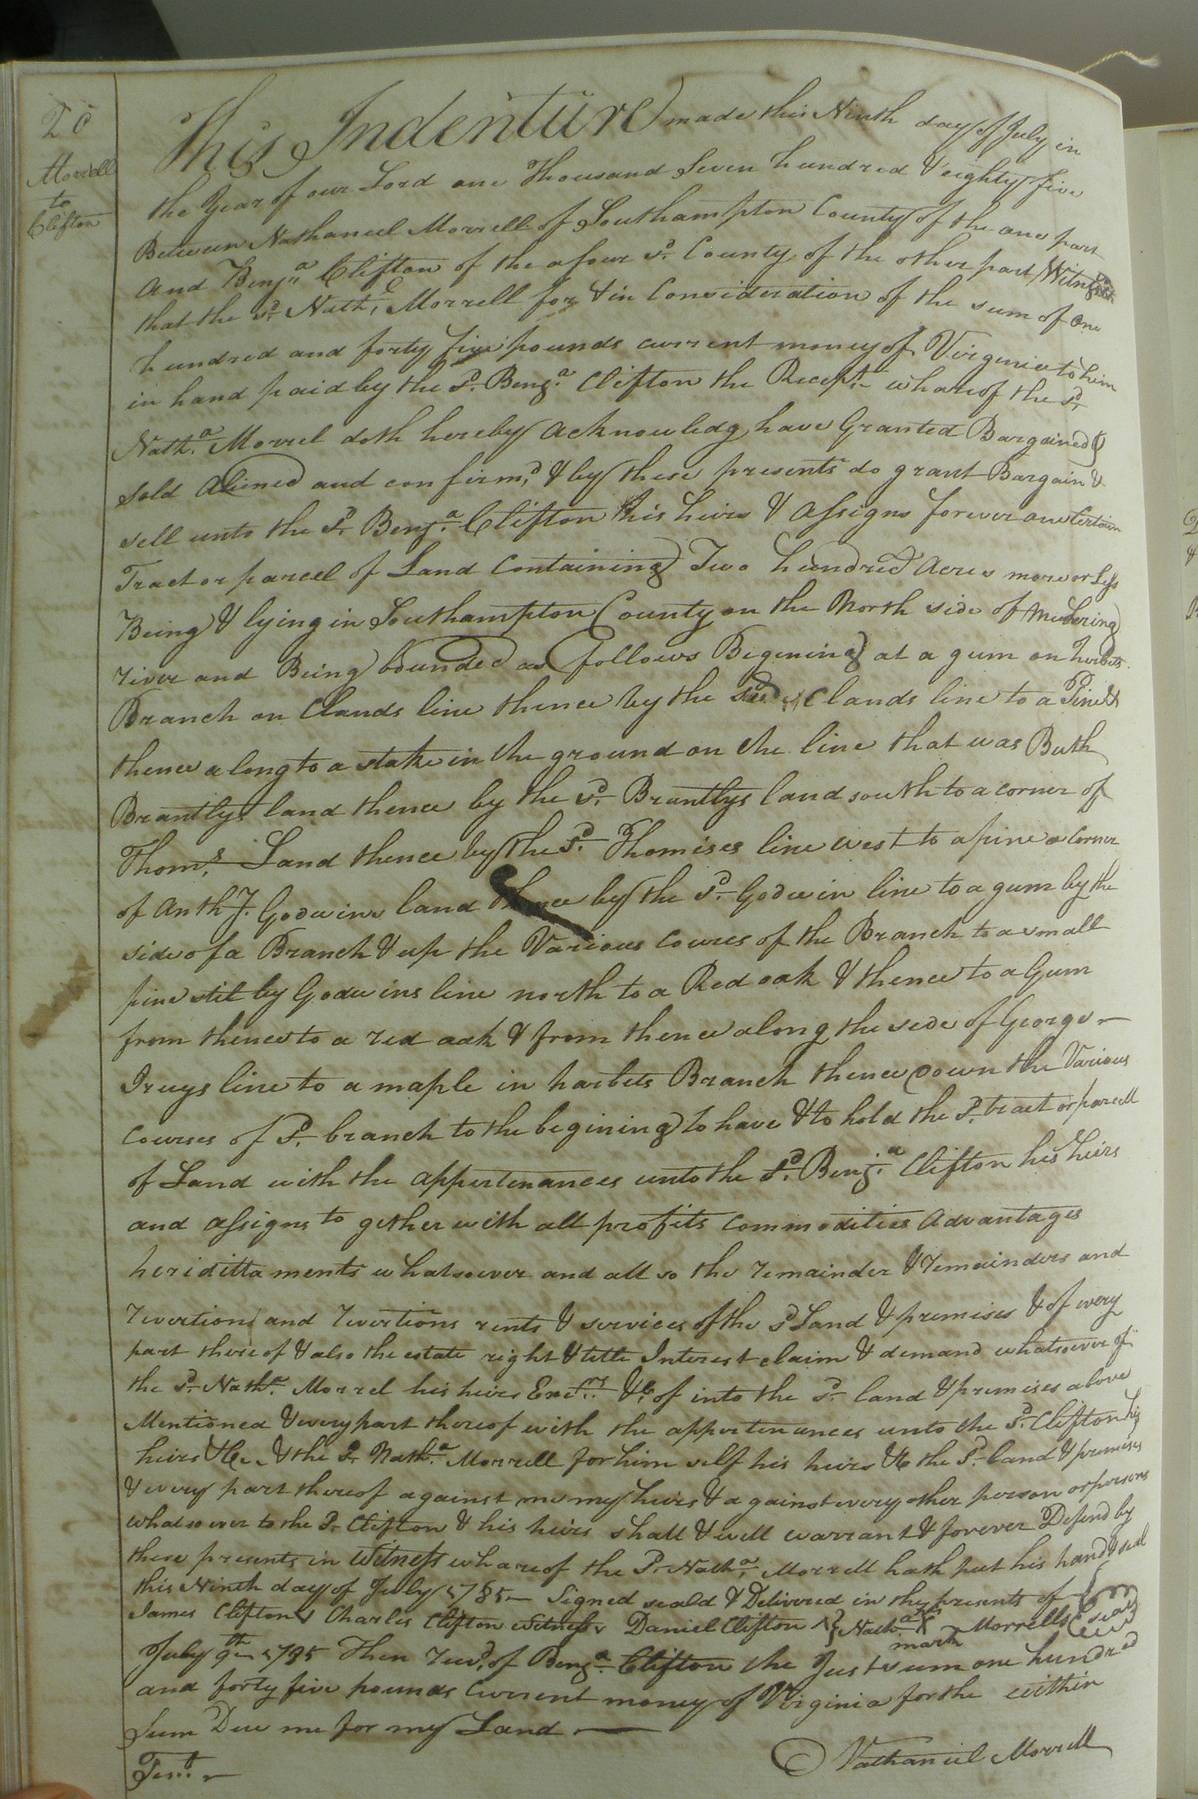 20
Morrell
to
Clifton
This Indenture made this Ninth day of July in
the Year of our Lord one Thousand Seven hundred & eighty five
Between Nathaniel Morrell of Southampton County of the one part
And Benja Clifton of the afore sd. County of the other part Witnesseth
that the sd. Nathl. Morrell for & in Consideration of the sum of one
hundred and forty five pounds current money of Virginia to him
in hand paid by the sd. Benja. Clifton the Recept whareof the sd.
Natha. Morrel doth hereby acknowledg have Granted Bargained
Sold Aliened and confirmd. & by these presents do grant Bargain &
sell unto the sd. Benja. Clifton his heirs & assigns forever one Certain
Tract or parcel of Land Containing Two hundred Acres more or Less
Being & lying in Southampton County on the North side of Meherring
river and Being bounded as follows Begining at a gum on harbets
Branch on Clands line thence by the sd. Clands line to a Pine &
thence along to a stake in the ground on the line that was Buth
Brantlys land thence by the sd. Brantlys land south to a corner of
Thoms. Land thence by the sd. Thomises line west to a pine a Corner
of Anth J. Godwins land thence by the sd. Godwin line to a gum by the
side of a Branch & up the Various cources of the Branch to a small
pine stil by Godwins line north to a Red oak & thence to a Gum
from thence to a red oak & from thence along the side of George
Irveys line to a maple in harbets Branch thence Down the Various
courses of sd. branch to the begining to have & to hold the sd. tract or parcell
of Land with the appertenances unto the sd. Benja. Clifton his heirs
and assigns to gether with all profits commodities Advantages
heridittaments whatsoever and all so the remainder & remainders and
revertion and revertions rents & services of the sd Land & premises & of every
part there of & also the estate right & title Interest claim & demand whatsoever of
the sd. Natha. Morrel his heirs Exetrs. &c of in to the sd. land & premises above
Mentioned & every part thereof with the appertenances unto the sd. Clifton his
heirs &c. & the sd. Natha. Morrell for him self his heirs &c the sd. land & premises
& every part thereof against me my heirs & against every other person or persons
whatsoever to the sd. Clifton & his heirs shall & will warrant & forever Defend by
these presents in Witness whareof the sd. Natha. Morrell hath put his hand & seal
this Ninth day of July 1785 Signed seald & Delivered in the presents of
James Clifton Charles Clifton Witness Daniel Clifton } Natha. X Morrells (seal)
mark
July 9th 1785 Then Recvd. of Benja. Clifton the Just sum one hundred
and forty five pounds Current money of Virginia for the within
Sum Due me for my Land
Nathaniel Morrell
Test.